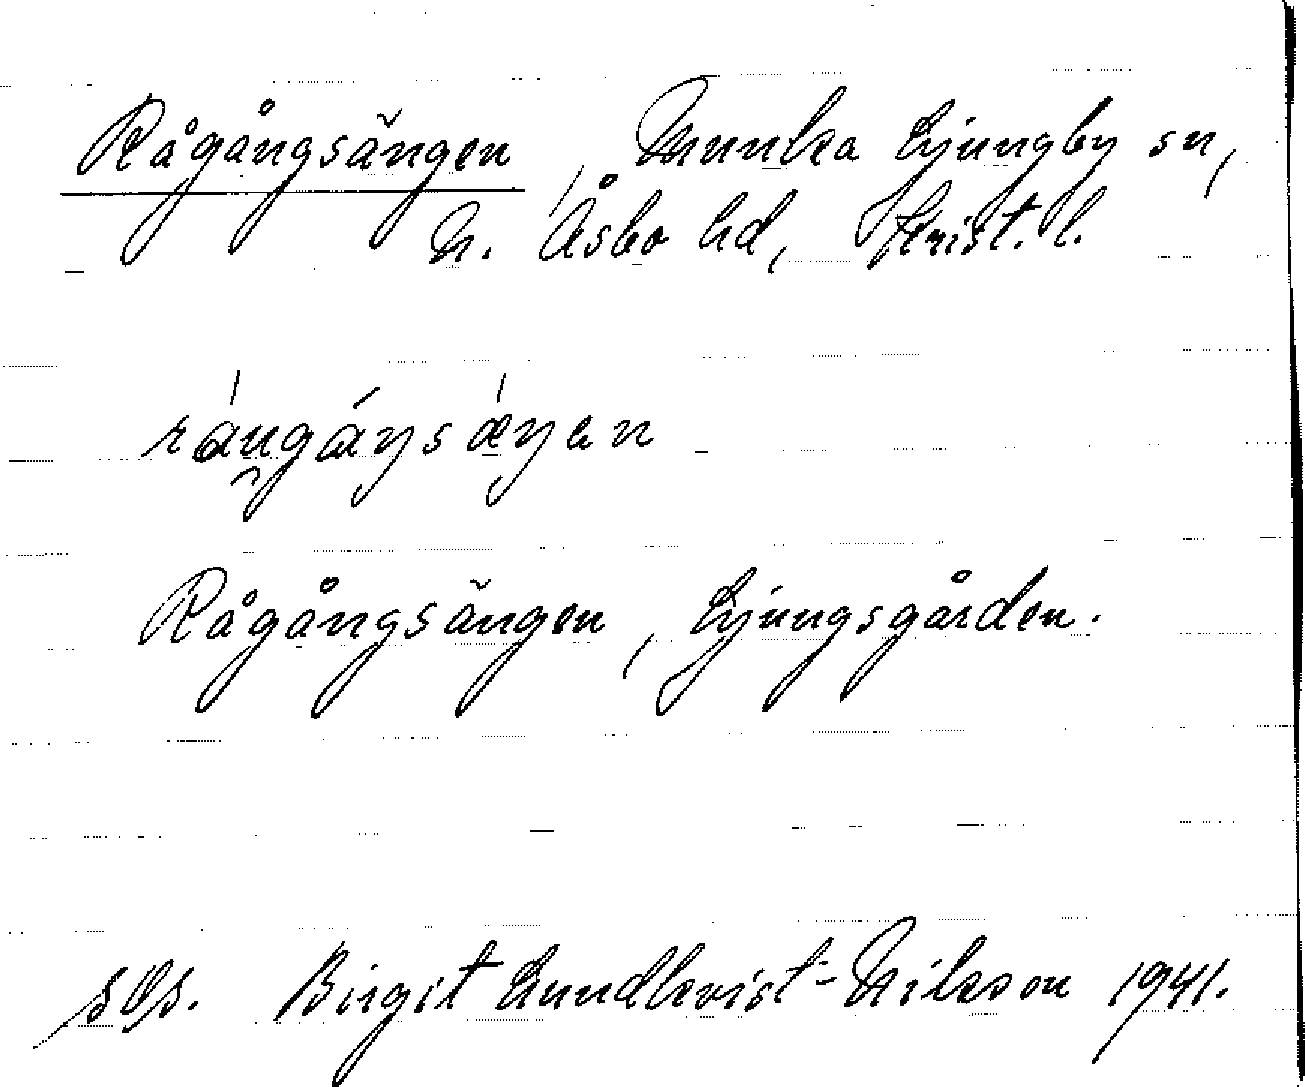 Rågångsängen, Munka Ljungby sn,
N. Åsbo hd, Krist. l.
Rågångsängen, Ljungsgården.
Birgit Lundkvist-Nilsson 1941.